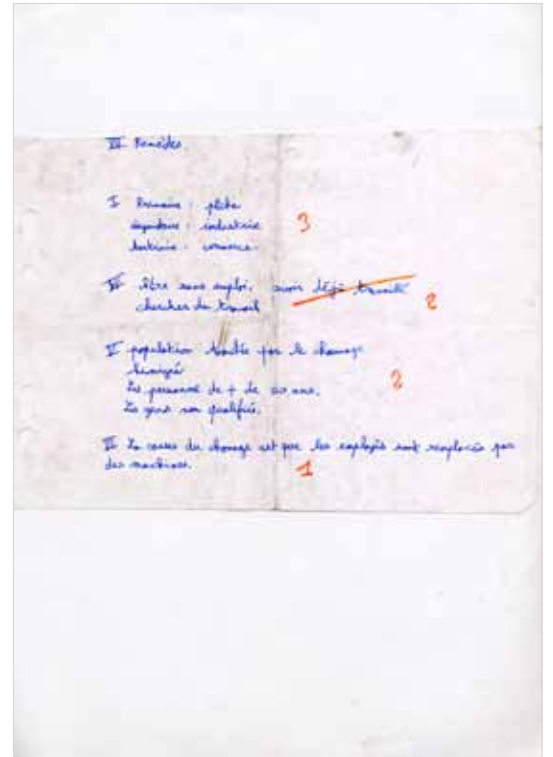 VI Remèdes
I Primaire : pêche
secondaire : industrie
tertiaire : commerce.
3
être sans emploi. avoir déjà travaillé
chercher du travail
2
population touchée par le chomage
Les personne de + de 50 ans.
Les gens non qualifiés.
2
La cause du chomage est que les employés sont remplacés par
des machines.
1